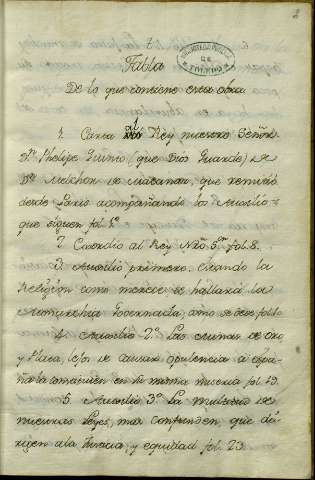 2
BIBLIOTECA PUBLICA
DE
TOLEDO
Tabla
De lo que contiene esta obra
1. Carta al Rey nuestro Señor
Dn. Phelipe Quinto (que Dios Guarde) de
Dn. Melchor de Macanaz, que remitió
desde Paris acompañando los Auxilios
que siguen fol. 1º
2. Exordio al Rey Nro. Sor. fol. 8.
3. Auxilio primero. Quando la
Religion como merece se hallará la
Monarchia Governada, como se dese fol.
4. Auxilio 2º. Las minas de Oro
y Plata, lejos de causar opulencia a Espa-
ña la constituien en la misma miseria fol. 19.
5. Auxilio 3º. La Multitud de
nuestras Leyes, mas confunden, que di-
rijen a la Justicia, y equidad fol. 23.